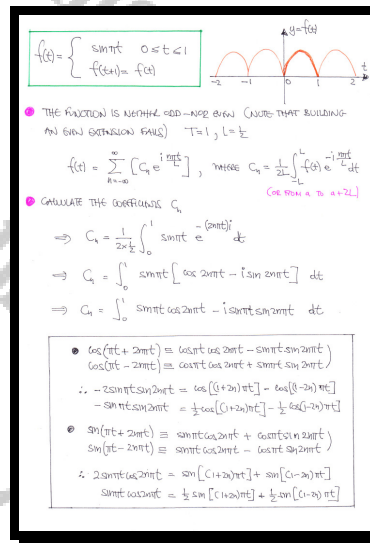 y=f(t)
f(t) = { sinπt 0≤t≤1
f(t+1) = f(t)
-2 -1 0 1 2 t
THE FUNCTION IS NEITHER ODD-NOR EVEN (NOTE THAT BUILDING
AN EVEN EXTENSION FAILS) T=1, L=½
f(t) = ∑_{n=-∞}^{∞} [Cₙ e^{i nπt/L}], WHERE Cₙ = 1/2L ∫_{-L}^{L} f(t) e^{-i nπt/L} dt
(OR FROM a TO a+2L)
CALCULATE THE COEFFICIENTS Cₙ
⇒ Cₙ = 1/(2×½) ∫₀¹ sinπt e^{-(2nπt)i} dt
⇒ Cₙ = ∫₀¹ sinπt [cos2nπt - i sin2nπt] dt
⇒ Cₙ = ∫₀¹ sinπt cos2nπt - i sinπt sin2nπt dt
● cos(πt+2nπt) ≡ cosπt cos2nπt - sinπt sin2nπt )
cos(πt-2nπt) ≡ cosπt cos2nπt + sinπt sin2nπt )
∴ -2sinπt sin2nπt = cos[(1+2n)πt] - cos[(1-2n)πt]
-sinπt sin2nπt = ½cos[(1+2n)πt] - ½cos[(1-2n)πt]
● sin(πt+2nπt) ≡ sinπt cos2nπt + cosπt sin2nπt )
sin(πt-2nπt) ≡ sinπt cos2nπt - cosπt sin2nπt )
∴ 2sinπt cos2nπt = sin[(1+2n)πt] + sin[(1-2n)πt]
sinπt cos2nπt = ½ sin[(1+2n)πt] + ½ sin[(1-2n)πt]